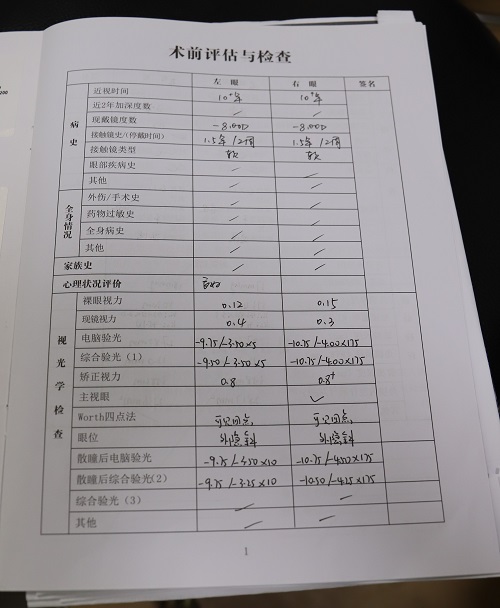 术前评估与检查
左 眼 右 眼 签名
病史
近视时间 10+年 10+年
近2年加深度数
现戴镜度数 -8.00D -8.00D
接触镜史/(停戴时间) 1.5年/2周 1.5年/2周
接触镜类型 软 软
眼部疾病史 / /
其他 / /
全身情况
外伤/手术史 / /
药物过敏史 / /
全身病史 / /
其他 / /
家族史 / /
心理状况评价
视光学检查
裸眼视力 0.12 0.15
现镜视力 0.4 0.3
电脑验光 -9.75/-3.50×5 -10.75/-4.00×175
综合验光(1) -9.50/-3.50×5 -10.75/-4.00×175
矫正视力 0.8 0.8+
主视眼 ✓
Worth四点法 可见四点 可见四点
眼位 外隐斜 外隐斜
散瞳后电脑验光 -9.75/-3.50×10 -10.75/-4.50×175
散瞳后综合验光(2) -9.75/-3.25×10 -10.50/-4.25×175
综合验光(3) / /
其他 / /
1